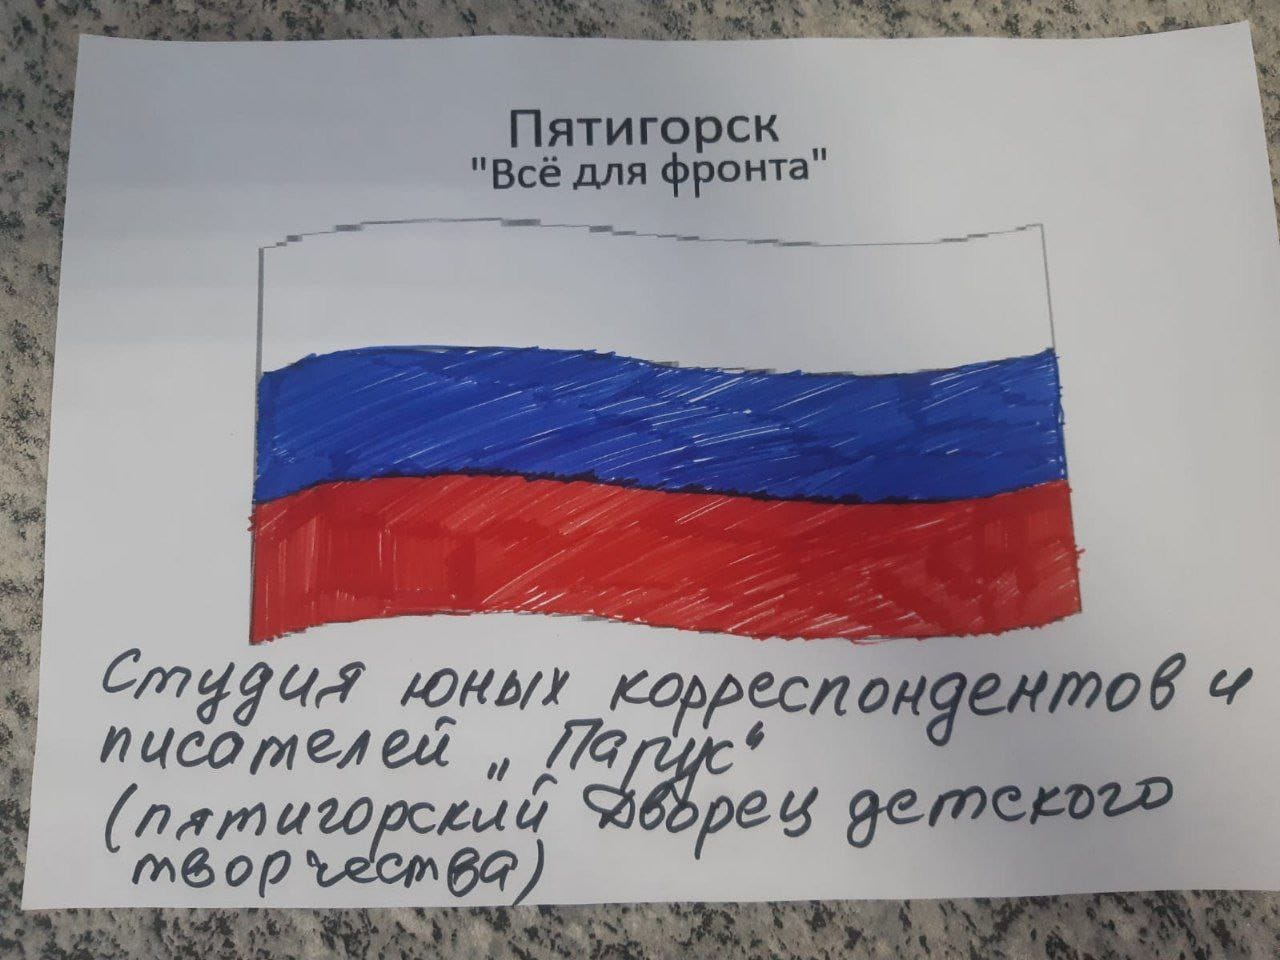 Пятигорск
"Всё для фронта"
Студия юных корреспондентов и
писателей „Парус“
(пятигорский Дворец детского
творчества)